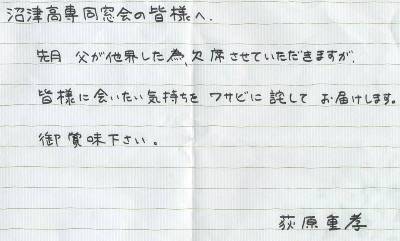 沼津高専同窓会の皆様へ.
先月 父が他界した為、欠席させていただきますが、
皆様に会いたい気持ちを ワサビに 託して お届けします。
御賞味下さい。
荻原重孝